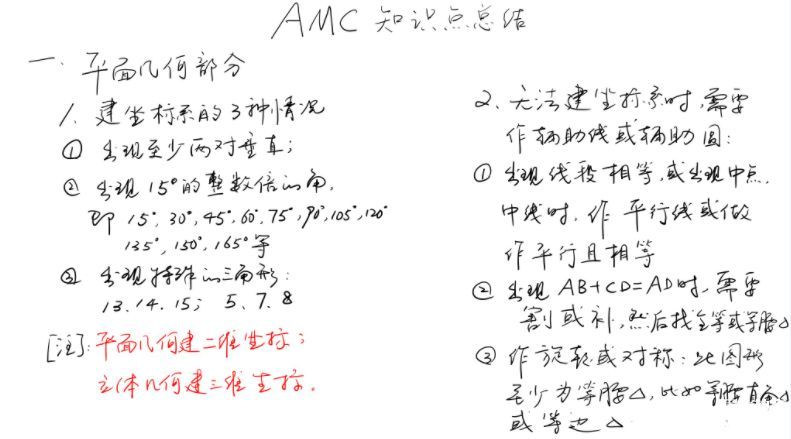 AMC 知识点总结
一. 平面几何部分
1. 建坐标系的3种情况
① 出现至少两对垂直;
② 出现15°的整数倍的角,
即 15°, 30°, 45°, 60°, 75°, 90°, 105°, 120°
135°, 150°, 165° 等
③ 出现特殊的三角形:
13. 14. 15; 5. 7. 8
[注]: 平面几何建二维坐标;
立体几何建三维坐标.
2. 无法建坐标系时, 需要
作辅助线或辅助圆:
① 出现线段相等, 或出现中点.
中线时, 作平行线或做
作平行且相等
② 出现 AB+CD=AD时, 需要
割或补, 然后找全等或等腰△
③ 作旋转或对称: 此图形
至少为等腰△, 比如等腰直角△
或等边△